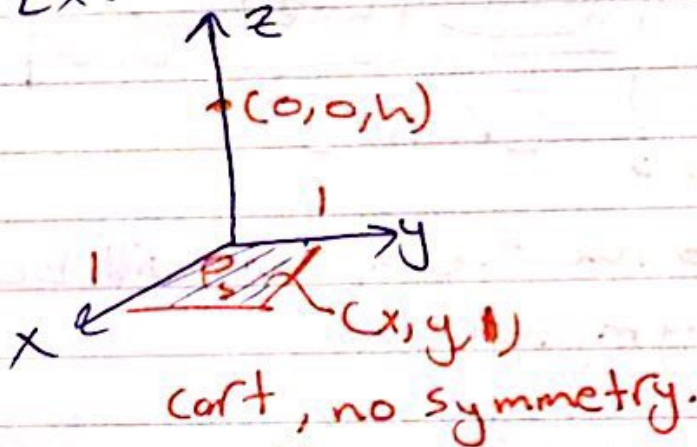 Ex.
z
(0,0,h)
1
y
1
ρs
x
(x,y,1)
cart, no symmetry.